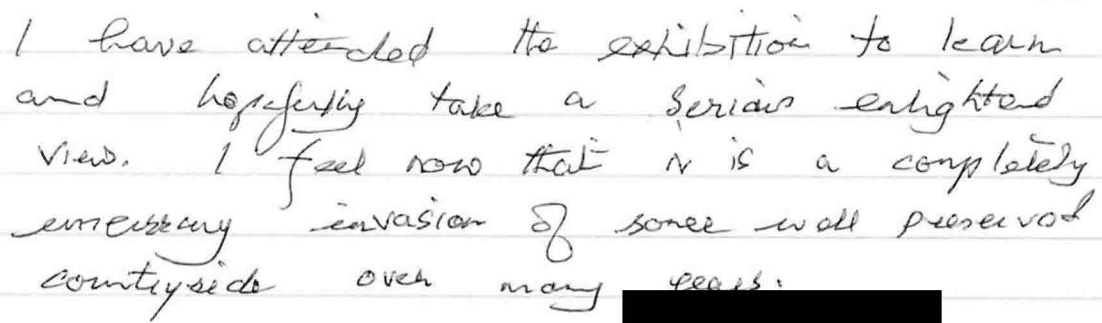 I have attended the exhibition to learn
and hopefully take a serious enlightened
view. I feel now that it is a completely
unnecessary invasion of some well preserved
countryside over many years.